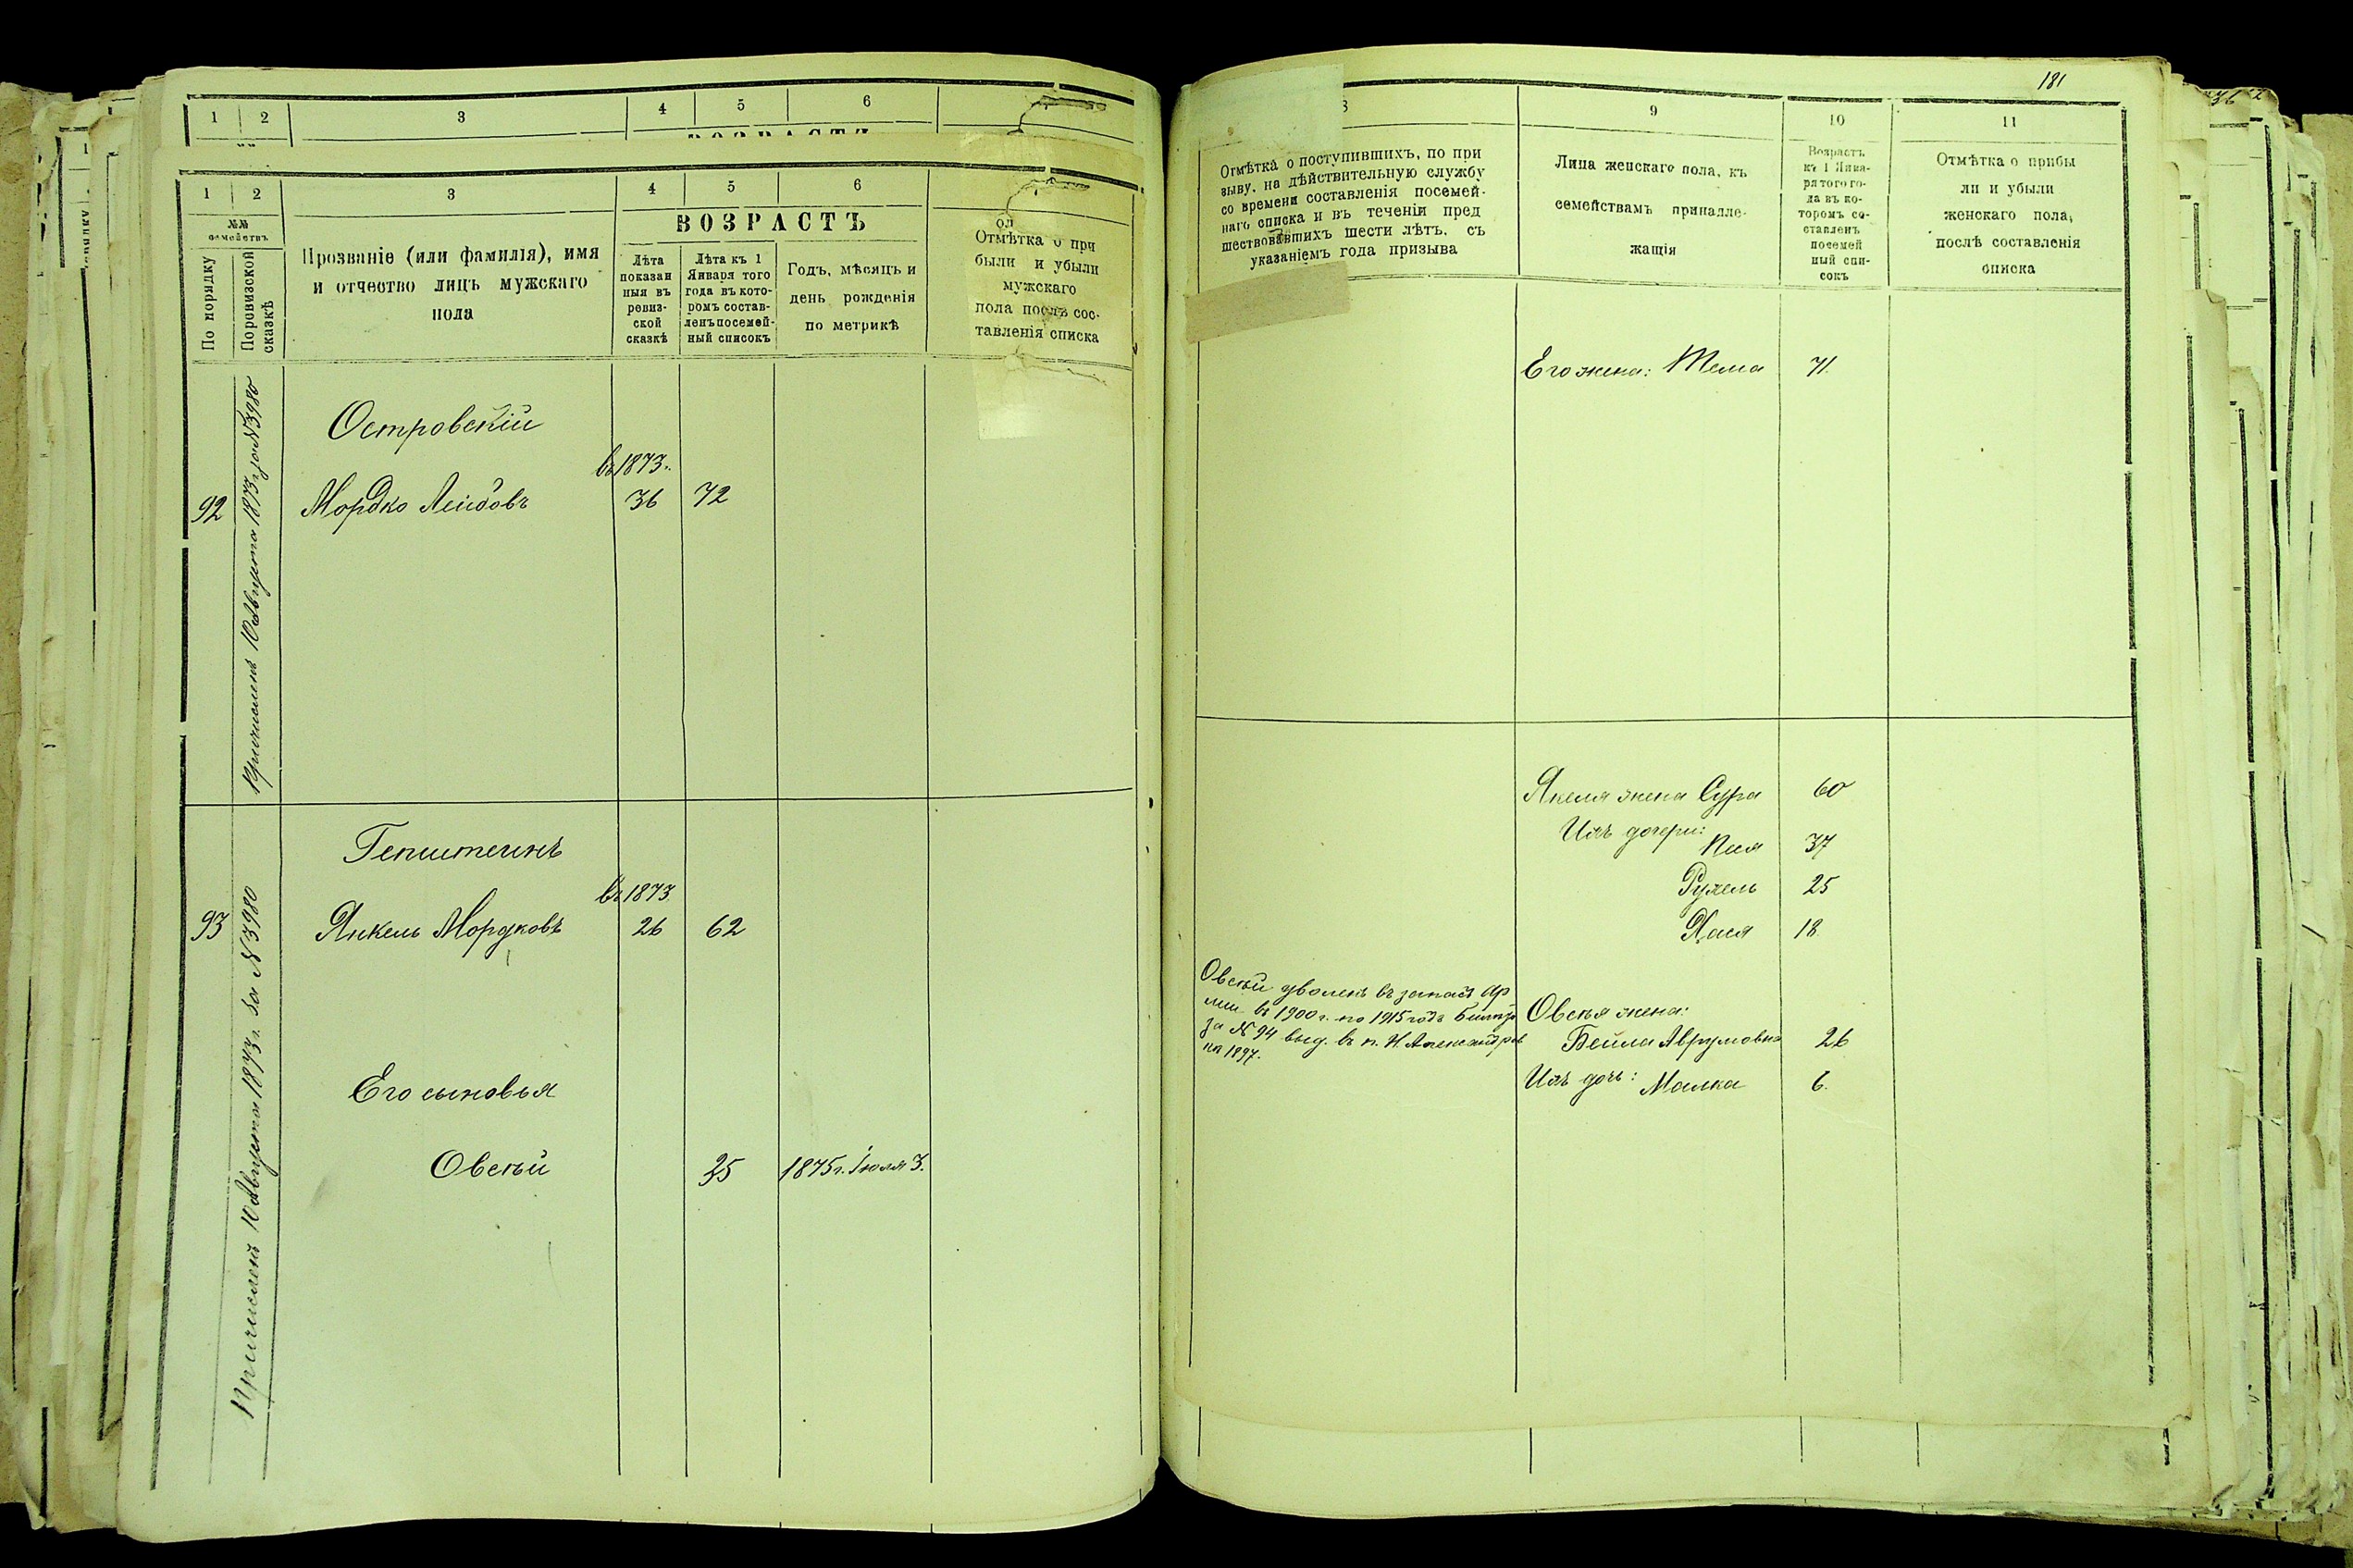 1 2 3 4 5 6
1 2 3 4 5 6
№№ семействъ
По порядку
По ревизской сказкѣ
Прозваніе (или фамилія), имя
и отчество лицъ мужскаго
пола
ВОЗРАСТЪ
Лѣта
показан
ныя въ
ревиз-
ской
сказкѣ
Лѣта къ 1
Января того
года въ кото-
ромъ состав-
ленъ посемей-
ный списокъ
Годъ, мѣсяцъ и
день рожденія
по метрикѣ
Отмѣтка о при
были и убыли
мужскаго
пола послѣ сос-
тавленія списка
Причисленъ 10 Августа 1873 г. за № 3980
Островскій
въ 1873 г.
92 Мордко Лейбовъ 36 72
Причисленъ 10 Августа 1873 г. за № 3980
Гепштеинъ
въ 1873
93 Янкель Мордковъ 26 62
Его сыновья
Овсѣй 25 1875 г. Іюля 3.
181
8 9 10 11
Отмѣтка о поступившихъ, по при
зыву, на дѣйствительную службу
со времени составленія посемей-
наго списка и въ теченіи пред
шествовавшихъ шести лѣтъ, съ
указаніемъ года призыва
Лица женскаго пола, къ
семействамъ принадле-
жащія
Возрастъ
къ 1 Янва-
ря того го-
да въ ко-
торомъ со-
ставленъ
посемей
ный спи-
сокъ
Отмѣтка о прибы
ли и убыли
женскаго пола,
послѣ составленія
списка
Его жена: Тема 71.
Янкеля жена Сура 60
Ихъ дочери:
Песя 37
Рухель 25
Хася 18
Овсѣй уволенъ въ запасъ Ар
міи въ 1900 г. по 1915 годъ билетъ
за № 94 выд. въ п. Н. Александров
пр 1897.
Овсѣя жена:
Бейла Аврумовна 26
Ихъ дочь: Малка 6.